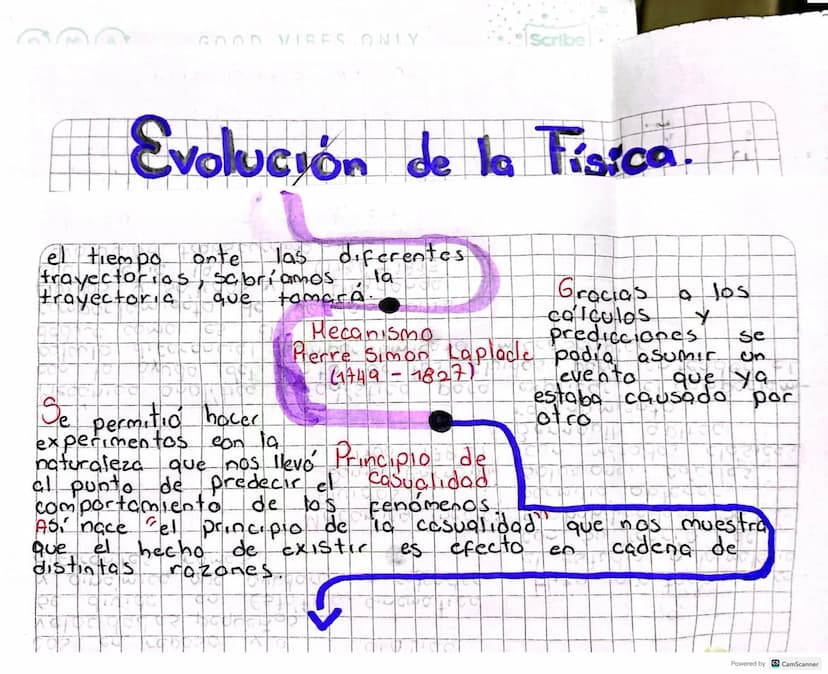 GOOD VIBES ONLY
Scribe
Evolución de la Física.
el tiempo ante las diferentes
trayectorias, sabríamos la
trayectoria que tomará.
Mecanismo
Pierre Simon Laplacle
(1749 - 1827)
Gracias a los
cálculos y
predicciones se
podía asumir un
evento que ya
estaba causado por
otro
Se permitió hacer
experimentos con la
naturaleza que nos llevó
al punto de predecir el
comportamiento de los fenómenos.
Así nace "el principio de la casualidad" que nos muestra
que el hecho de existir es efecto en cadena de
distintas razones.
Principio de
casualidad
Powered by CamScanner